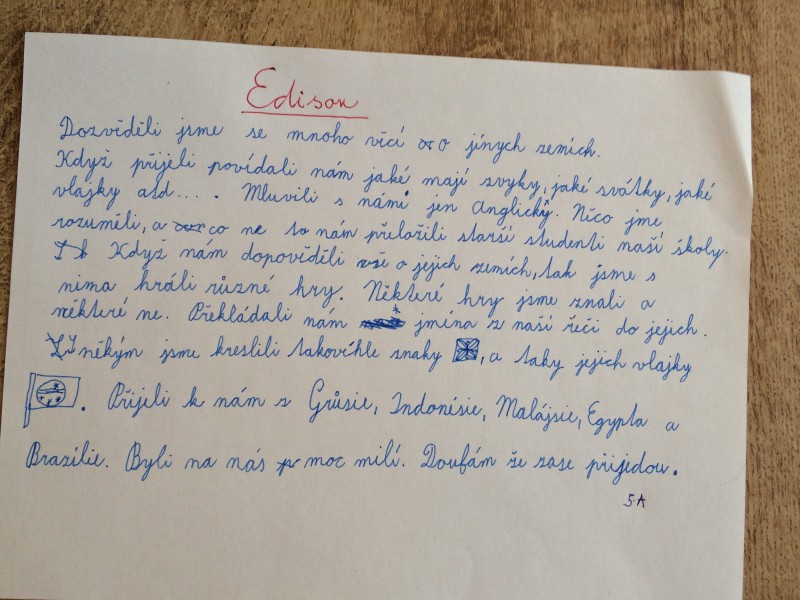 Edison
Dozvěděli jsme se mnoho věcí o jiných zemích.
Když přijeli povídali nám jaké mají zvyky, jaké svátky, jaké
vlajky atd... . Mluvili s námi jen Anglicky. Něco jsme
rozuměli, a co ne to nám přeložili starší studenti naší školy.
Když nám dopověděli vše o jejich zemích, tak jsme s
nima hráli různé hry. Některé hry jsme znali a
některé ne. Překládali nám jména z naší řeči do jejich.
někým jsme kreslili takovíhle znaky , a taky jejich vlajky
. Přijeli k nám z Grůsie, Indonésie, Malájsie, Egypta a
Brazílie. Byli na nás moc milí. Doufám že zase přijedou.
5.A